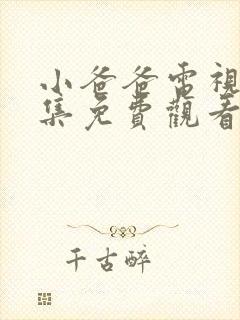 小爸爸電視
集免費觀看
千古醉